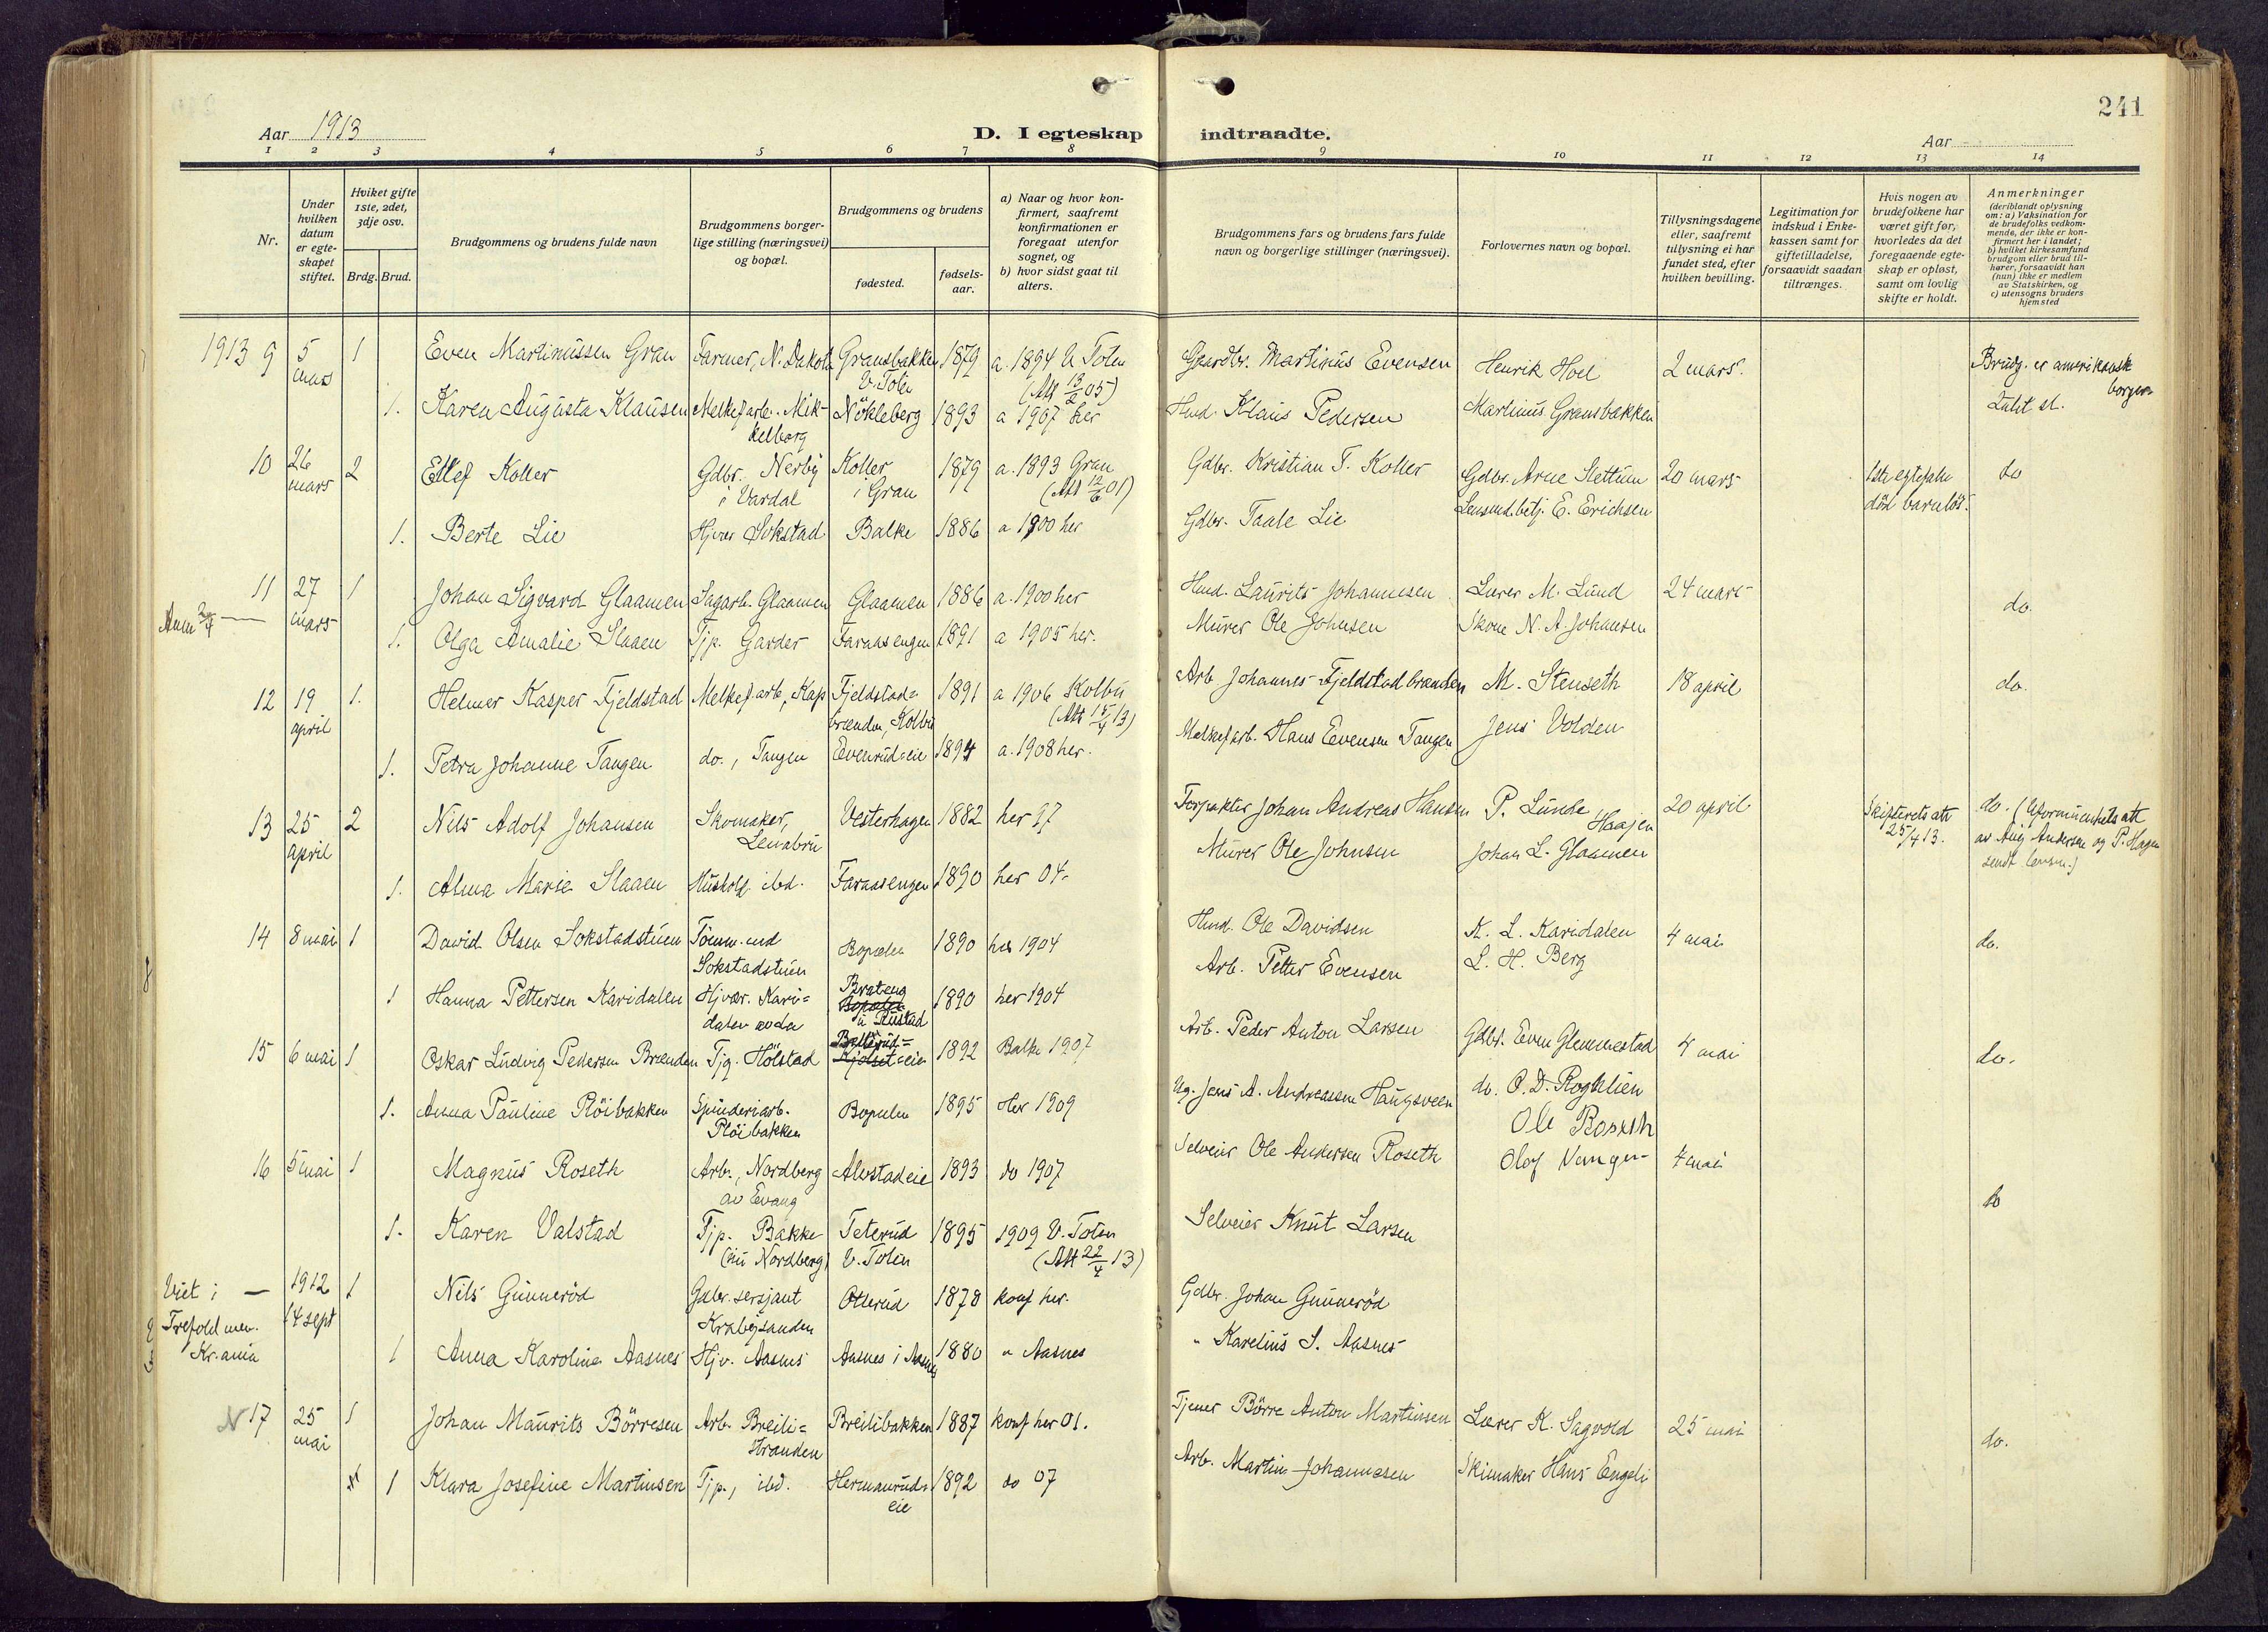 241
Aar 1913
D. I egteskap indtraadte.
Aar
1 2 3 4 5 6 7 8 9 10 11 12 13 14
Nr.
Under hvilken datum er egteskapet stiftet.
Hvilket gifte 1ste, 2det, 3dje osv.
Brdg. Brud.
Brudgommens og brudens fulde navn
Brudgommens borgerlige stilling (næringsvei) og bopæl.
Brudgommens og brudens
fødested.
fødselsaar.
a) Naar og hvor konfirmert, saafremt konfirmationen er foregaat utenfor sognet, og
b) hvor sidst gaat til alters.
Brudgommens fars og brudens fars fulde navn og borgerlige stillinger (næringsvei).
Forlovernes navn og bopæl.
Tillysningsdagene eller, saafremt tillysning ei har fundet sted, efter hvilken bevilling.
Legitimation for indskud i Enkekassen samt for giftetilladelse, forsaavidt saadan tiltrænges.
Hvis nogen av brudefolkene har været gift før, hvorledes da det foregaaende egteskap er opløst, samt om lovlig skifte er holdt.
Anmerkninger
(deriblandt oplysning om: a) Vaksination for de brudefolks vedkommende, der ikke er konfirmert her i landet; b) hvilket kirkesamfund brudgom eller brud tilhører, forsaavidt han (hun) ikke er medlem av Statskirken, og c) utensogns bruders hjemsted
1913 9 5 mars 1 Even Martinussen Gran Farmer, N. Dakota Gransbakken V. Toten 1879 a. 1894 V. Toten (Att 13/2 05) Gaardbr. Martinus Evensen Henrik Hoel 2 mars. Brudg. er amerikansk borger
1. Karen Augusta Klausen Melkefarb. Mikkelborg Nökleberg 1893 a 1907 her Hmd. Klaus Pedersen Martinus Gransbakken
10 26 mars 2 Etlef Koller Gdbr. Nerby i Vardal Koller i Gran 1879 a. 1893 Gran (Att 12/6 01) Gdbr. Kristian T. Koller Gdbr. Arne Slettum 20 mars 1ste egtefelle död barnlös. do
1. Berte Lie Hjvær Sokstad Balke 1886 a 1900 her Gdbr. Taale Lie Lensmd.betj. E. Erichsen
11 27 mars 1 Johan Sigvard Glaamen Sagarb. Glaamen Glaamen 1886 a. 1900 her Hmd. Laurits Johannesen Lærer M. Lund 24 mars do.
1. Olga Amalie Slaaen Tjp. Garder Faraasengen 1891 a 1905 her. Murer Ole Johnsen Skom N. A. Johansen
12 19 april 1. Helmer Kasper Fjeldstad Melkefarb, Kap Fjeldstadbrænden, Kolbu 1891 a 1906 Kolbu (Att 15/4 13) Arb Johannes Fjeldstadbrænden M. Stenseth 18 april do.
1. Petra Johanne Tangen do., Tangen Evenrudeie 1894 a. 1908 her. Melkefarb. Hans Evensen Tangen Jens Volden
13 25 april 2 Nils Adolf Johansen Skomaker, Lenabru Vesterhagen 1882 her 97 Forpakter Johan Andreas Hansen P. Lunde Haajen 20 april Skifterets att 25/4 13. do.
1. Alma Marie Slaaen Hushold. ibd. Faraasengen 1890 her 04. Murer Ole Johnsen Johan L. Glaamen av Aug Andersen og P. Hagen
14 8 mai 1 David Olsen Sokstadstuen Tömm.md Sokstadstuen Bopælen 1890 her 1904 Hmd. Ole Davidsen K. L. Karidalen 4 mai do.
1 Hanna Pettersen Karidalen Hjvær. Karidalen Brateng u Rustad 1890 her 1904 Arb. Petter Evensen L. H. Berg
15 6 mai 1 Oskar Ludvig Pedersen Brænden Tjg. Hölstad 1892 Balke 1907 Arb. Peder Anton Larsen Gdbr. Even Glemmestad 4 mai do.
1. Anna Pauline Plöibakken Spinderiarb. Plöibakken Bopælen 1895 Her 1909 Ug. Jens A. Andreassen Haugsveen do. O. D. Rognlien
16 5 mai 1 Magnus Roseth Arb., Nordberg av Evang Alvstadeie 1893 do 1907 Selveier Ole Andersen Roseth Ole Roseth 4 mai do
1. Karen Valstad Tjp. Bakke (nu Nordberg) Teterud V. Toten 1895 1909 V. Toten (Att 22/4 13) Selveier Knut Larsen
Viet i Trefold.men. Kr.ania — 1912 14 sept 1 Nils Gunneröd Gdbr. sersjant Krabysanden Otterud 1878 konf her. Gdbr. Johan Gunneröd
1 Anna Karoline Aasnes Hjv. Aasnes Aasnes i Aasnes 1880 " Aasnes " Karelius S. Aasnes
17 25 mai 1 Johan Maurits Börresen Arb. Breilistranden Breilibakken 1887 konf her 01. Tjener Börre Anton Martinsen Lærer K. Sagvold 25 mai do.
1 Klara Josefine Martinsen Tjp., ibd. Hermanrudseie 1892 do 07 Arb. Martin Johannesen Skimaker Hans Engeli